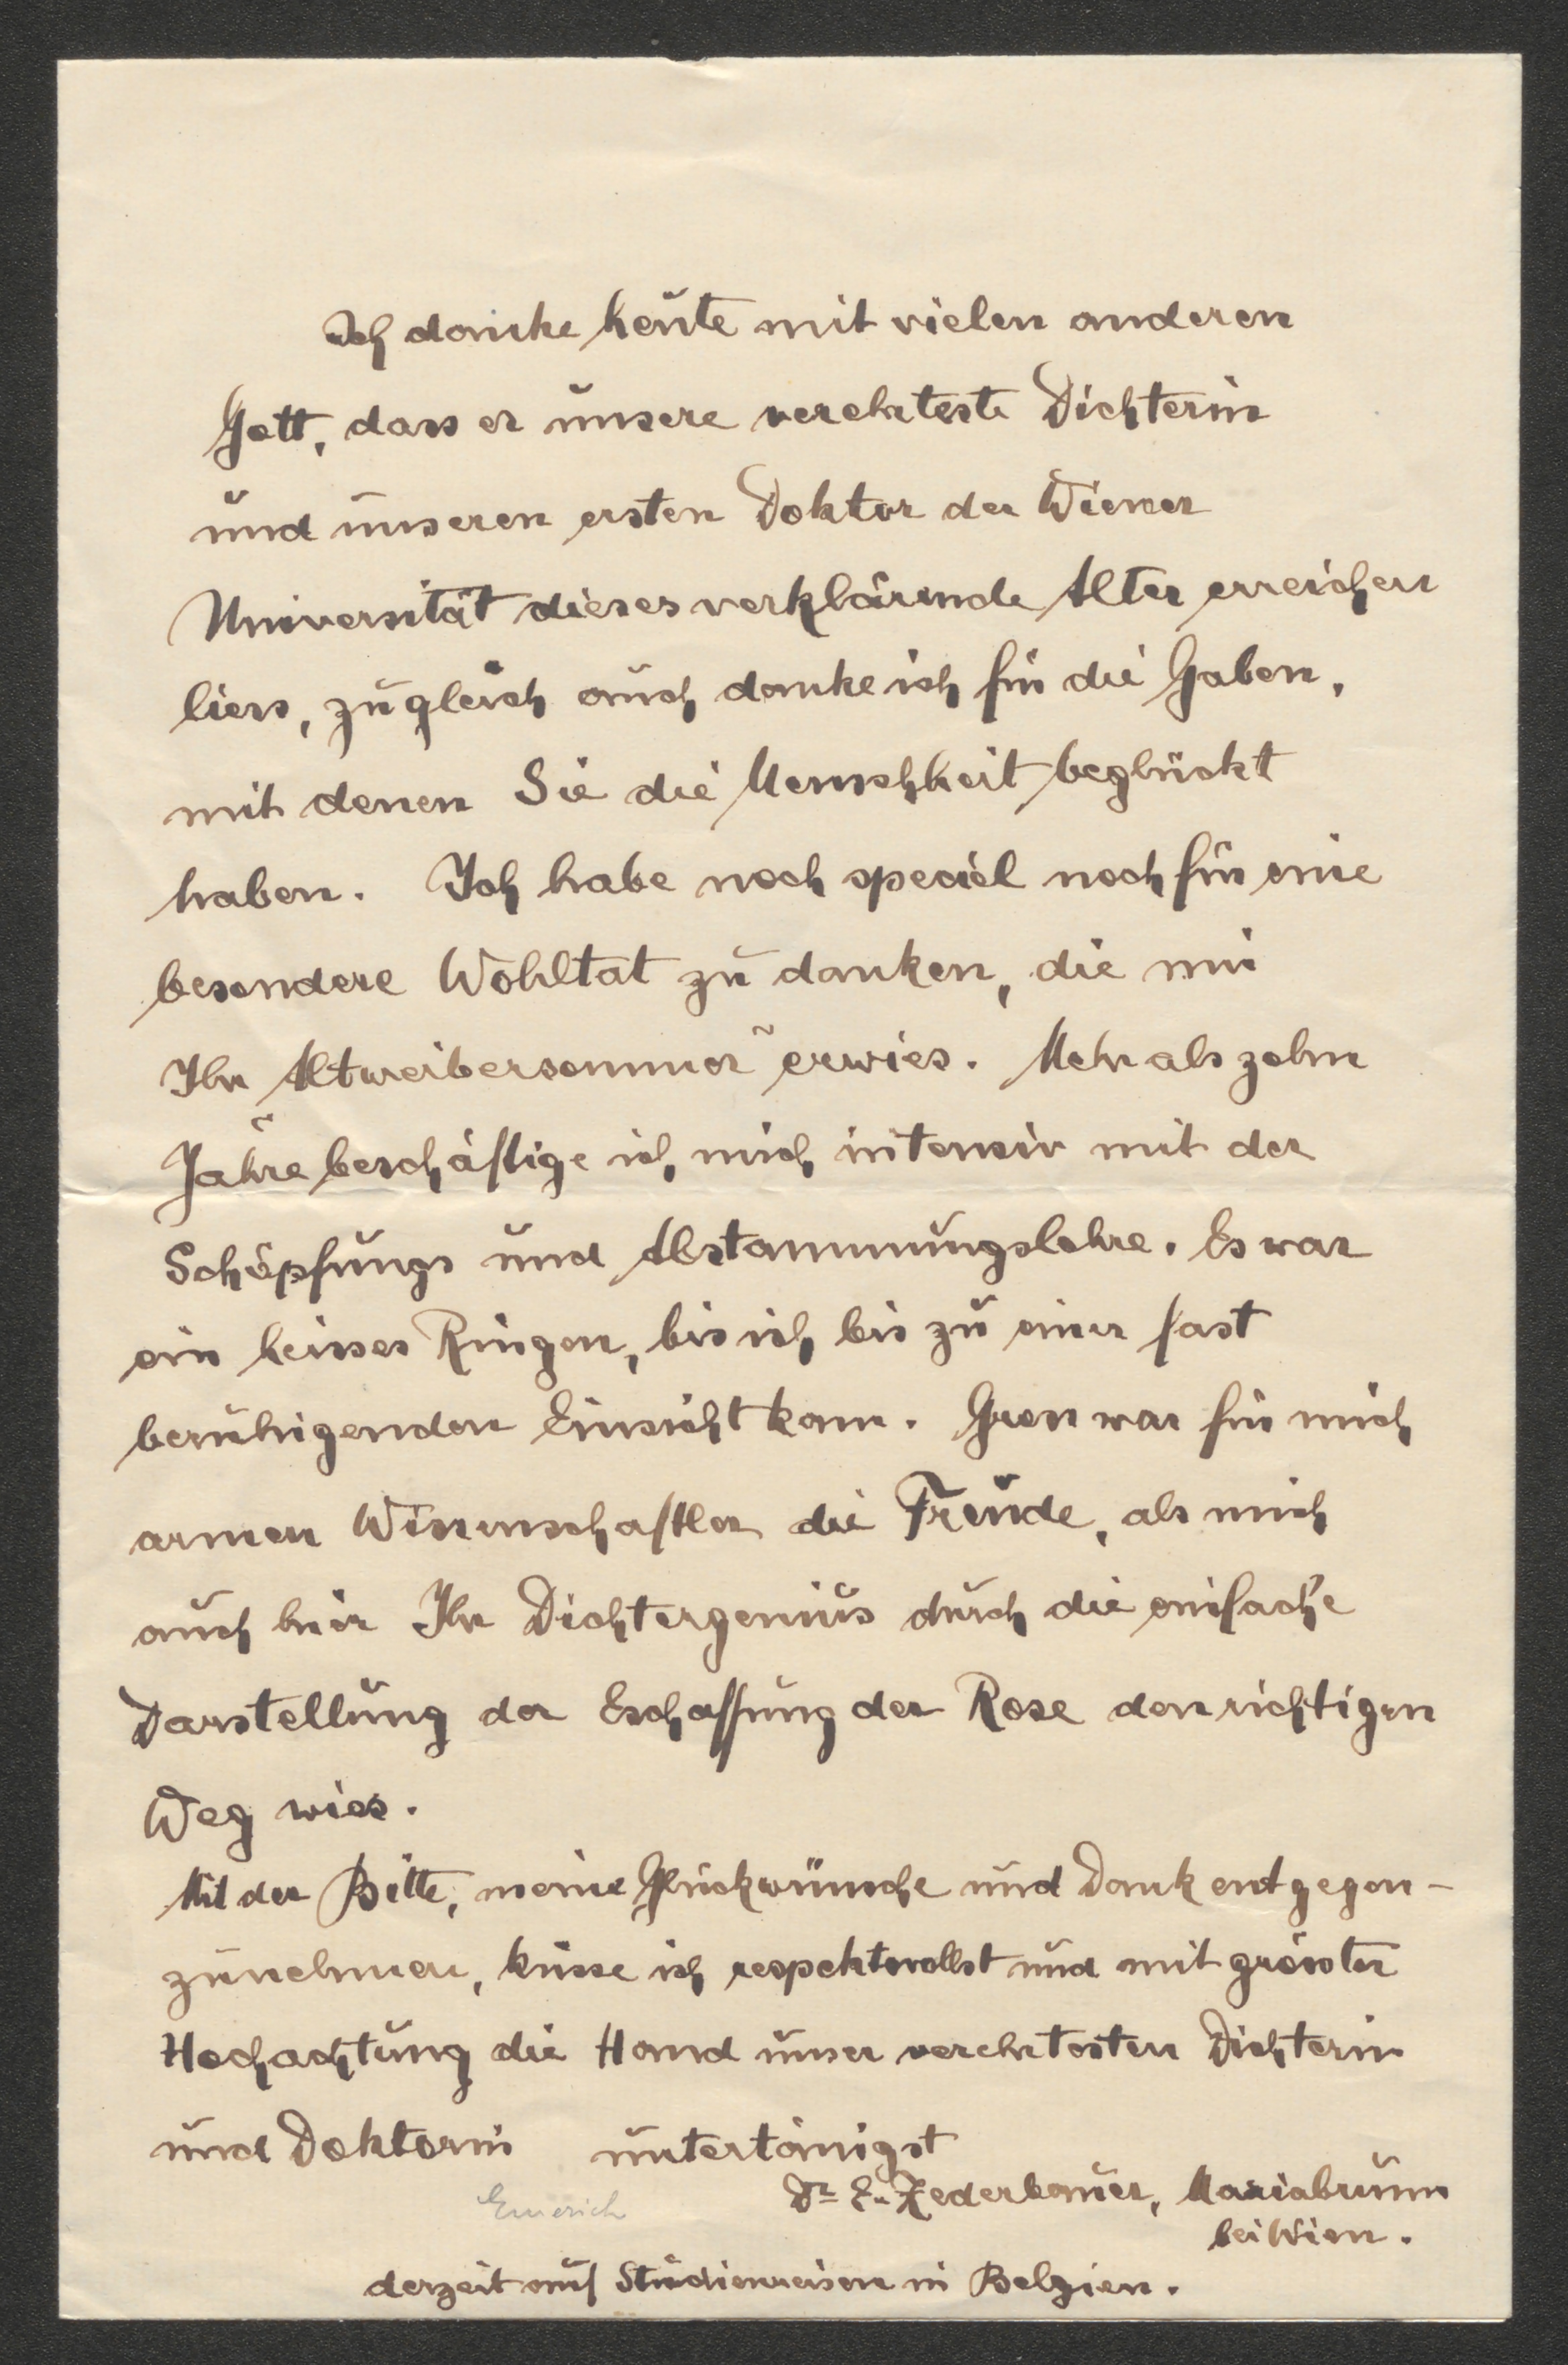 Ich danke heute mit vielen anderen
Gott, dass er unsere verehrteste Dichterin
und unseren ersten Doktor der Wiener
Universität dieses verklärende Alter erreichen
liess, zugleich auch danke ich für die Gaben,
mit denen Sie die Menschheit beglückt
haben. Ich habe noch speciel noch für eine
besondere Wohltat zu danken, die mir
Ihr Altweibersommer erwies. Mehr als zehn
Jahre beschäftige ich mich intensiv mit der
Schöpfungs und Abstammungslehre. Es war
ein heisses Ringen, bis ich bis zu einer fast
beruhigenden Einsicht kam. Gross war für mich
armen Wissenschaftler die Freude, als mich
auch hier Ihr Dichtergenius durch die einfache
Darstellung der Eschaffung der Rose den richtigen
Weg wies.
Mit der Bitte, meine Glückwünsche und Dank entgegen-
zunehmen, küsse ich respektvollst und mit grösster
Hochachtung die Hand unser verehrtesten Dichterin
und Doktorin untertänigst
Dr E. Zederbauer, Mariabrunn
Emerich
bei Wien.
derzeit auf Studienreisen in Belgien.